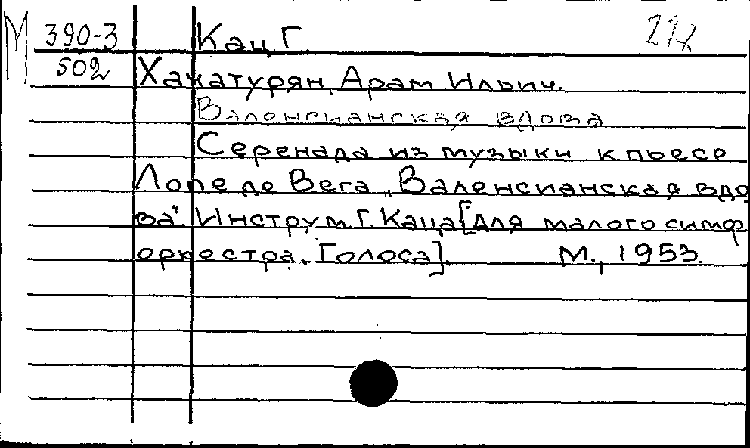 М 390-3 Кац Г.
502 Хачатурян, Арам Ильич.
Валенсианская вдова
Серенада из музыки к пьесе
Лопе де Вега „Валенсианская вдо
ва" Инструм. Г. Каца [Для малого симф
оркестра. Голоса]. М., 1953.